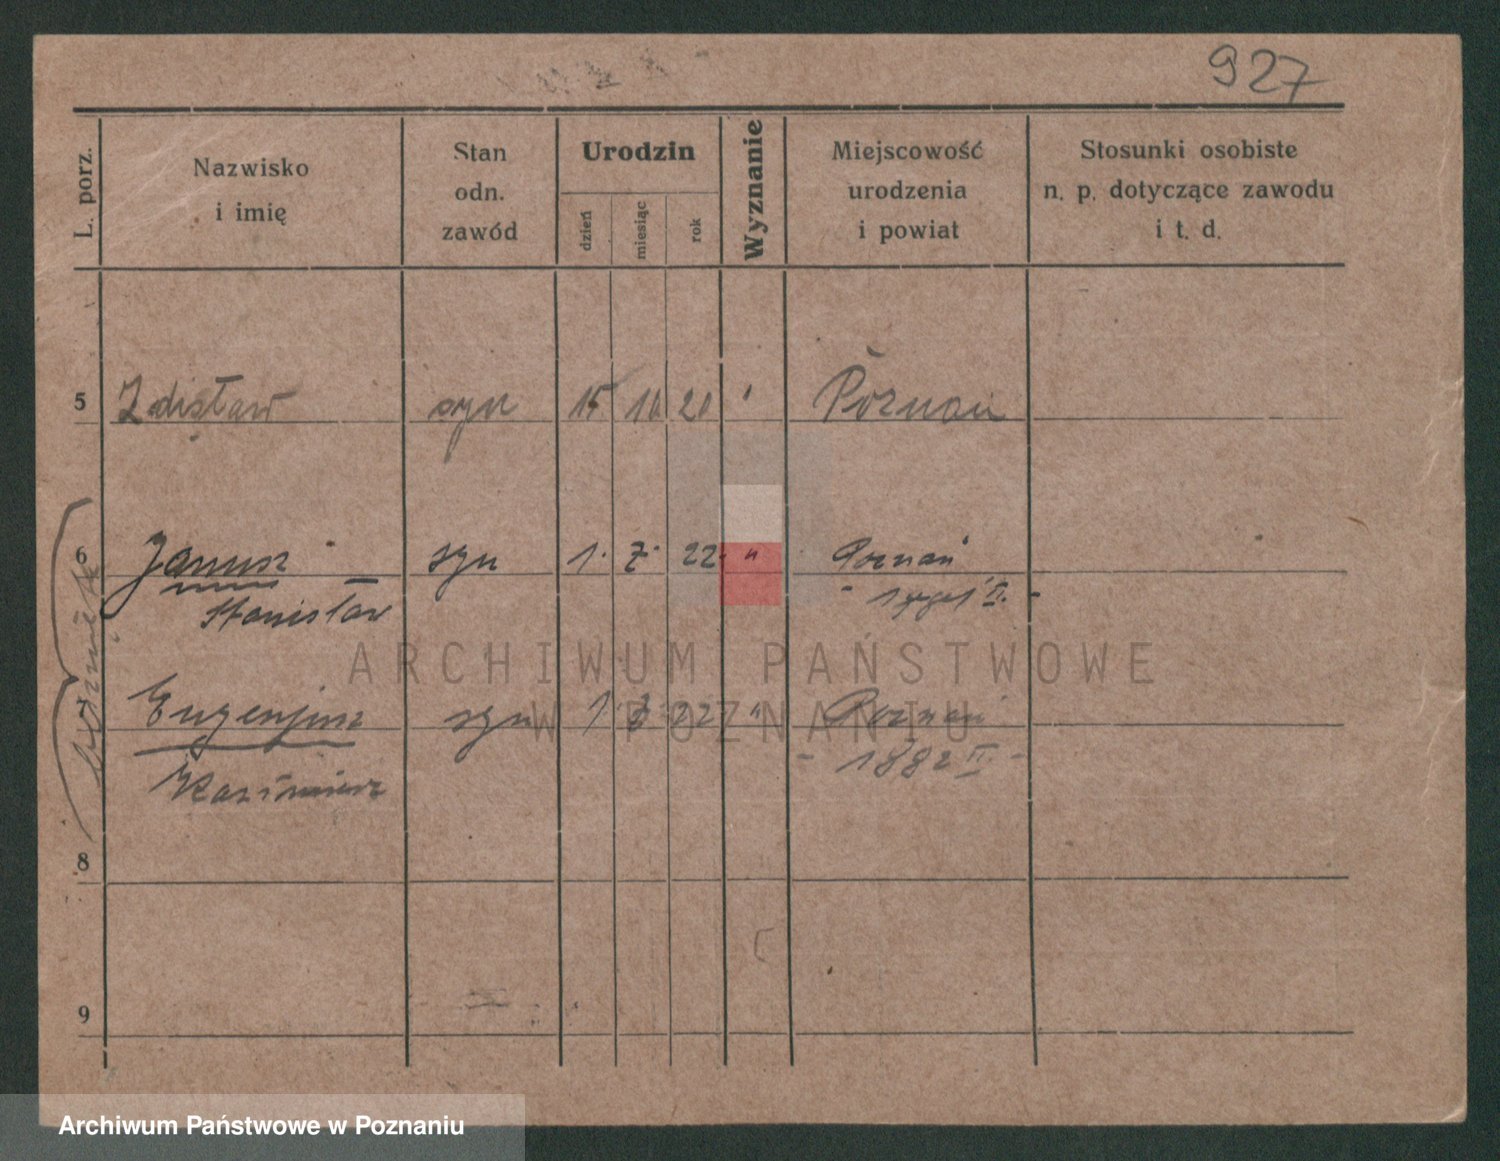 927
L. porz.
Nazwisko
i imię
Stan
odn.
zawód
Urodzin
dzień
miesiąc
rok
Wyznanie
Miejscowość
urodzenia
i powiat
Stosunki osobiste
n. p. dotyczące zawodu
i t. d.
5 Zdisław syn 15 10 20 " Poznań
6 Janusz syn 1. 7. 22. " Poznań
Stanisław
ARCHIWUM PAŃSTWOWE
W POZNANIU
Eugenjusz syn 1 7 22 " Poznań
Kazimierz - 1882 II -
8
9
Archiwum Państwowe w Poznaniu